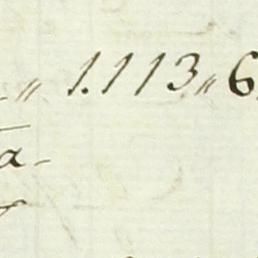 „ 1.113 „ 6
a-